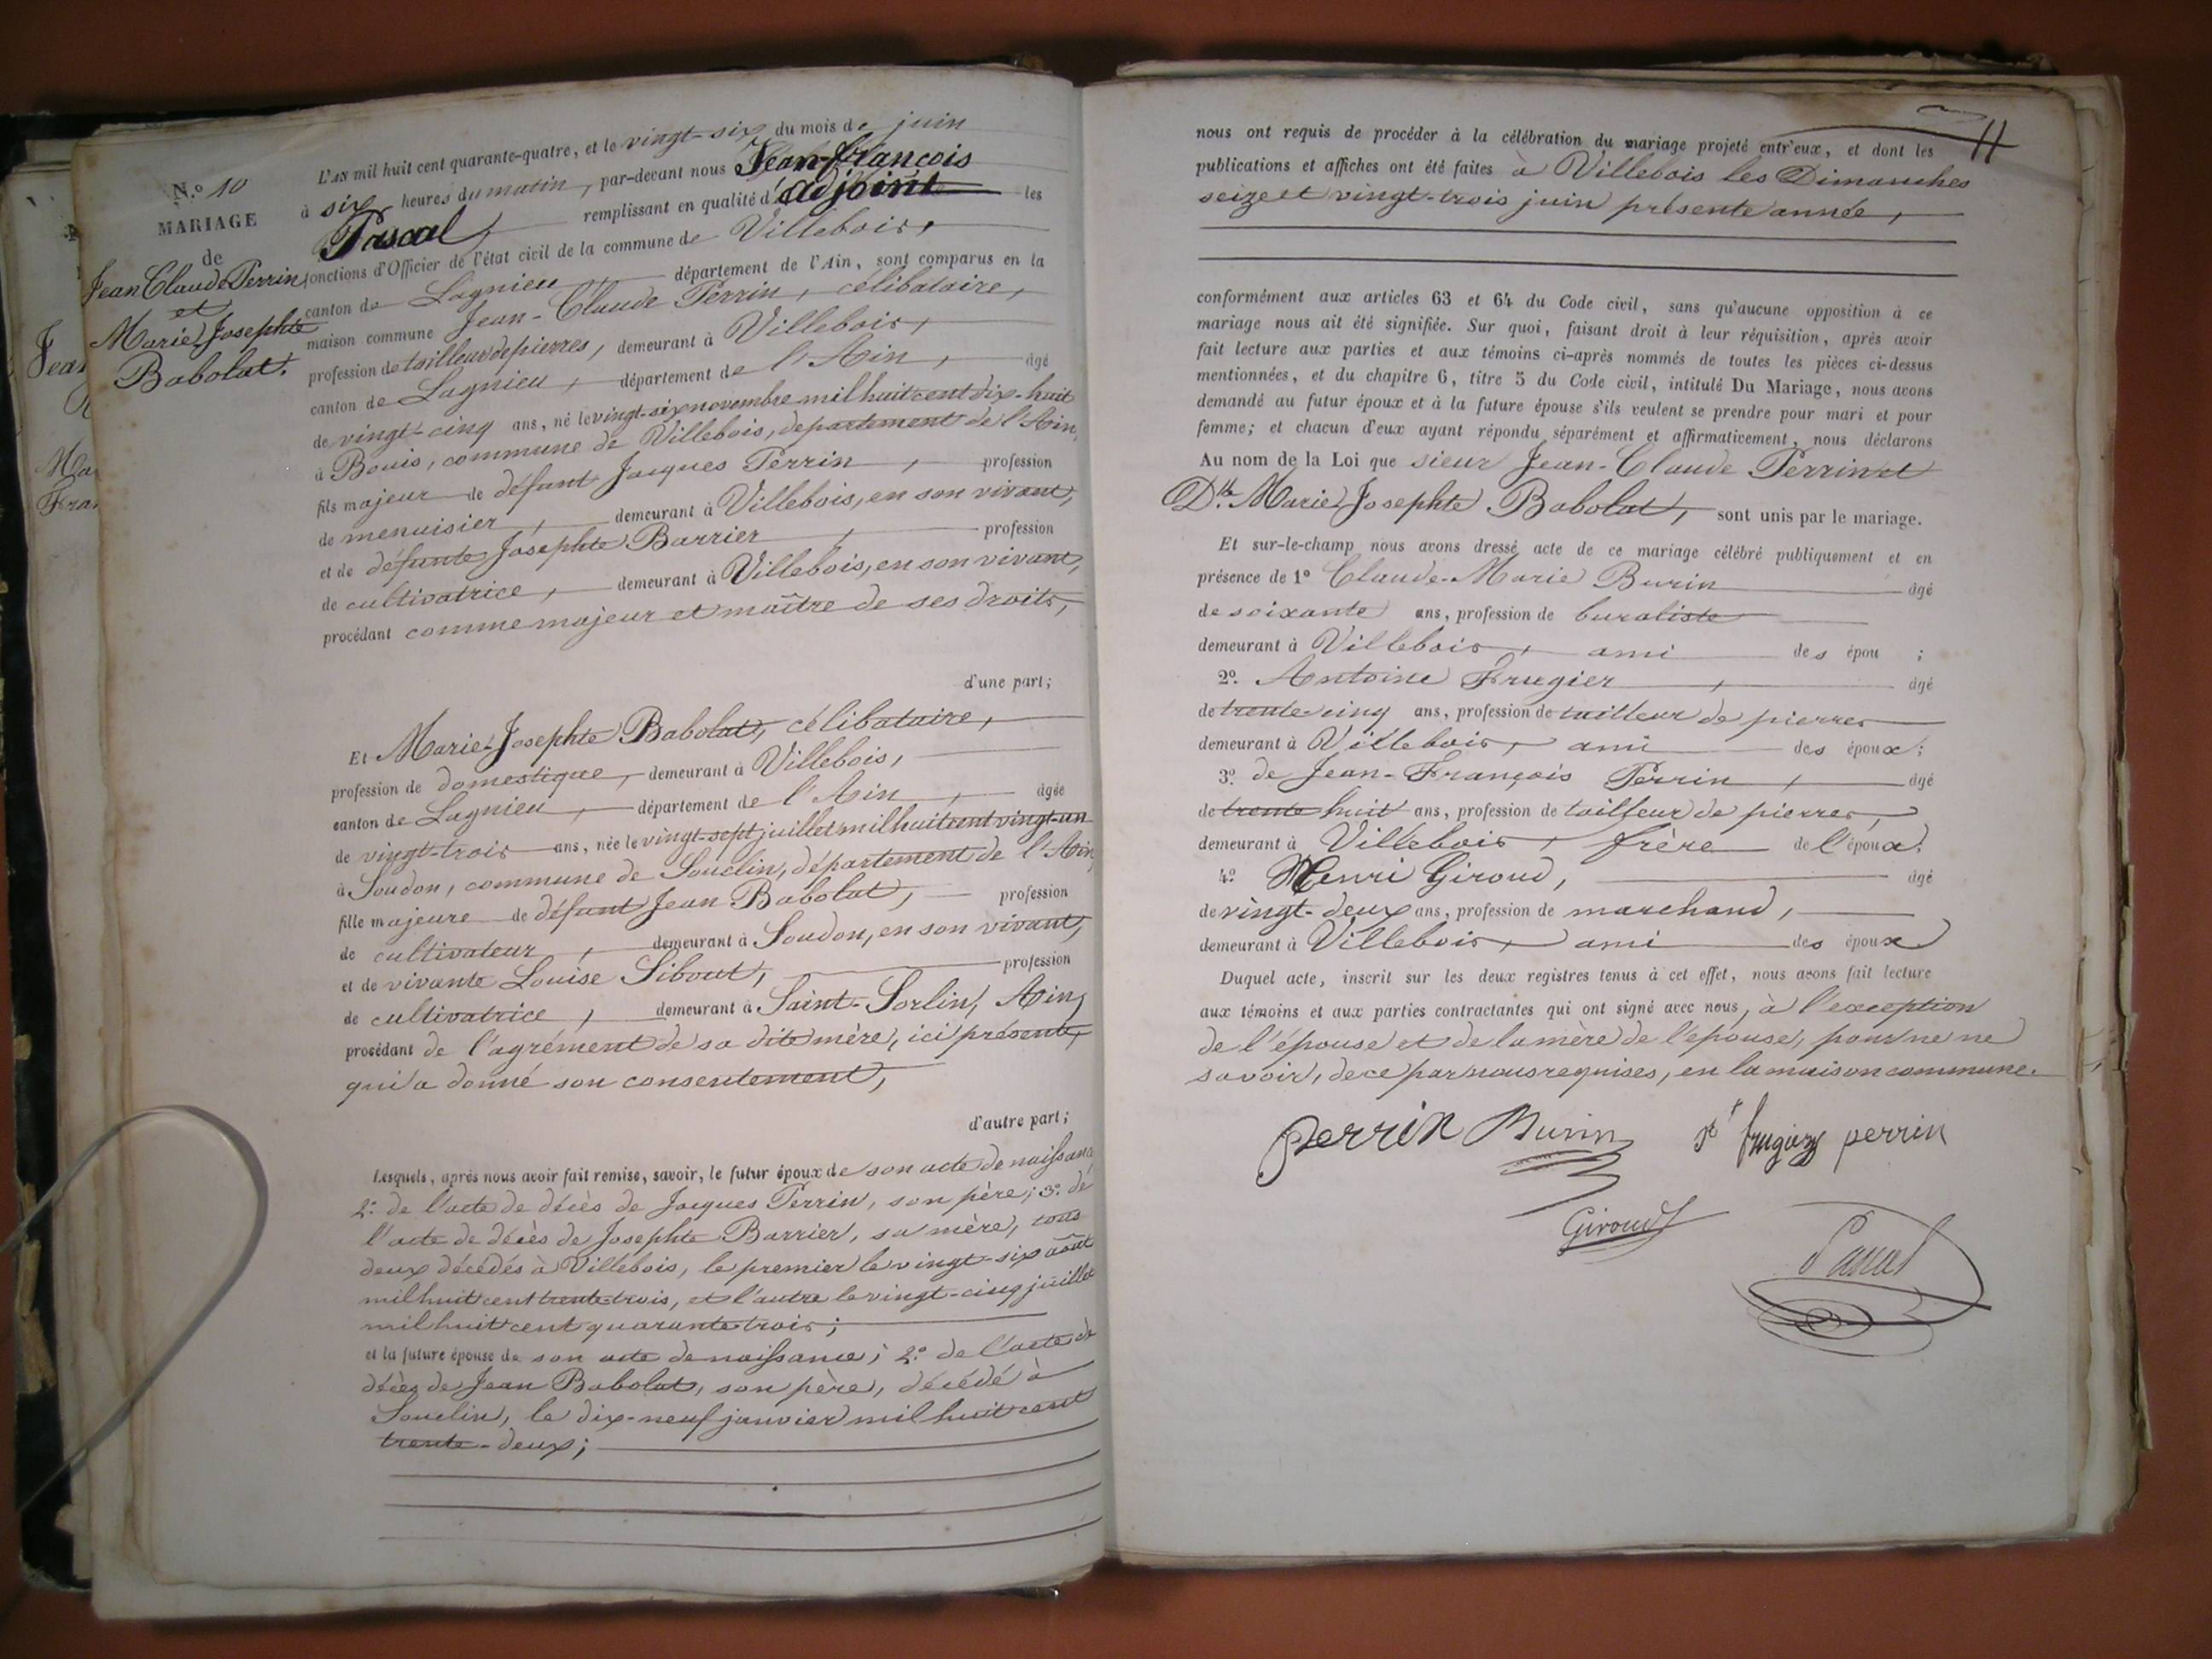 N.º 10
MARIAGE
de
Jean Claude Perrin
et
Marie-Josephte
Babolat.
L'AN mil huit cent quarante-quatre, et le vingt-six du mois de juin
à six heures du matin, par-devant nous Jean-François
Pascal, remplissant en qualité d'adjoint les
fonctions d'Officier de l'état civil de la commune de Villebois,
canton de Lagnieu, département de l'Ain, sont comparus en la
maison commune Jean-Claude Perrin, célibataire,
profession de tailleur de pierres, demeurant à Villebois,
canton de Lagnieu, département de l'Ain, âgé
de vingt-cinq ans, né le vingt-six novembre mil huit cent dix-huit
à Bouis, commune de Villebois, département de l'Ain,
fils majeur de défunt Jacques Perrin, profession
de menuisier, demeurant à Villebois, en son vivant,
et de défunte Josephte Barrier, profession
de cultivatrice, demeurant à Villebois, en son vivant,
procédant comme majeur et maître de ses droits,
d'une part;
Et Marie-Josephte Babolat, célibataire,
profession de domestique, demeurant à Villebois,
canton de Lagnieu, département de l'Ain, âgée
de vingt-trois ans, née le vingt-sept juillet mil huit cent vingt-un
à Soudon, commune de Souclin, département de l'Ain,
fille majeure de défunt Jean Babolat, profession
de cultivateur, demeurant à Soudon, en son vivant,
et de vivante Louise Sibout, profession
de cultivatrice, demeurant à Saint-Sorlin, Ain,
procédant de l'agrément de sa dite mère, ici présente,
qui a donné son consentement,
d'autre part;
Lesquels, après nous avoir fait remise, savoir, le futur époux de son acte de naissance
2º. de l'acte de décès de Jacques Perrin, son père; 3º. de
l'acte de décès de Josephte Barrier, sa mère, tous
deux décédés à Villebois, le premier le vingt-six août
mil huit cent trente-trois, et l'autre le vingt-cinq juillet
mil huit cent quarante-trois;
et la future épouse de son acte de naissance; 2º. de l'acte de
décès de Jean Babolat, son père, décédé à
Souclin, le dix-neuf janvier mil huit cent
trente-deux;
11
nous ont requis de procéder à la célébration du mariage projeté entr'eux, et dont les
publications et affiches ont été faites à Villebois les Dimanches
seize et vingt-trois juin présente année,
conformément aux articles 63 et 64 du Code civil, sans qu'aucune opposition à ce
mariage nous ait été signifiée. Sur quoi, faisant droit à leur réquisition, après avoir
fait lecture aux parties et aux témoins ci-après nommés de toutes les pièces ci-dessus
mentionnées, et du chapitre 6, titre 5 du Code civil, intitulé Du Mariage, nous avons
demandé au futur époux et à la future épouse s'ils veulent se prendre pour mari et pour
femme; et chacun d'eux ayant répondu séparément et affirmativement, nous déclarons
Au nom de la Loi que sieur Jean-Claude Perrin et
Dlle. Marie-Josephte Babolat, sont unis par le mariage.
Et sur-le-champ nous avons dressé acte de ce mariage célébré publiquement et en
présence de 1º Claude-Marie Burin âgé
de soixante ans, profession de buraliste
demeurant à Villebois, ami des épou ;
2º. Antoine Frugier, âgé
de trente-cinq ans, profession de tailleur de pierres
demeurant à Villebois, ami des époux;
3º. de Jean-François Perrin, âgé
de trente huit ans, profession de tailleur de pierres,
demeurant à Villebois, frère de l'époux.
4º. Henri Giroud, âgé
de vingt-deux ans, profession de marchand,
demeurant à Villebois, ami des époux
Duquel acte, inscrit sur les deux registres tenus à cet effet, nous avons fait lecture
aux témoins et aux parties contractantes qui ont signé avec nous, à l'exception
de l'épouse et de la mère de l'épouse, pour ne ne
savoir, de ce par nous requises, en la maison commune.
perrin Burin frugier perrin
Giroud
Pascal